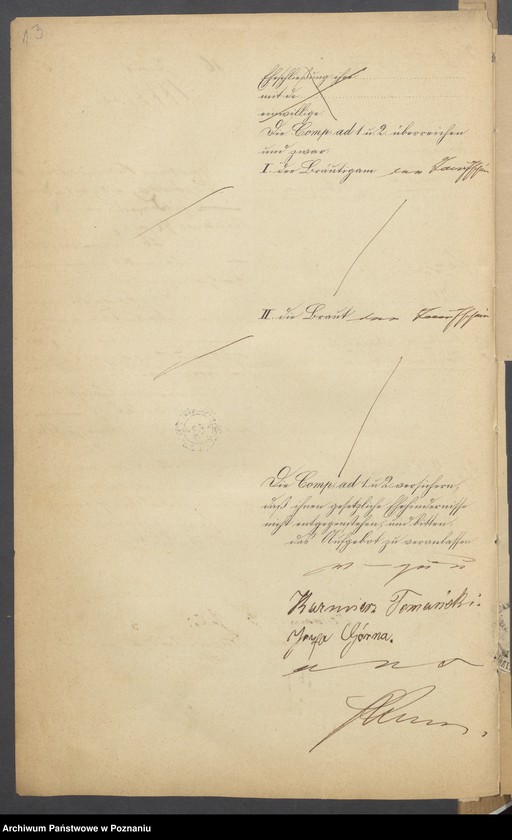 A.3
Eheschließung ihre
mit de
einwillige
Die Comp. ad 1 u 2 überreichen
und zwar
I. der Bräutigam den Taufschein
II. die Braut den Taufschein
Die Comp. ad 1 u 2 versichern,
daß ihnen gesetzliche Ehehindernisse
nicht entgegenstehen, und bitten,
das Aufgebot zu veranlassen
v. g. u.
Kazmierz Tomański.
Górna.
a u s
Archiwum Państwowe w Poznaniu